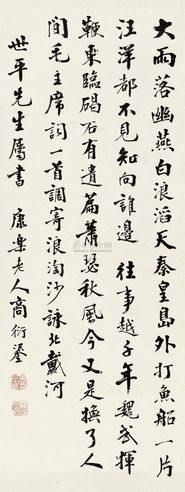 大雨落幽燕白浪滔天秦皇島外打魚船一片
汪洋都不見知向誰邊 往事越千年魏武揮
鞭東臨碣石有遺篇蕭瑟秋風今又是換了人
間毛主席詞一首調寄浪淘沙詠北戴河
世平先生屬書 康樂老人商衍鎏